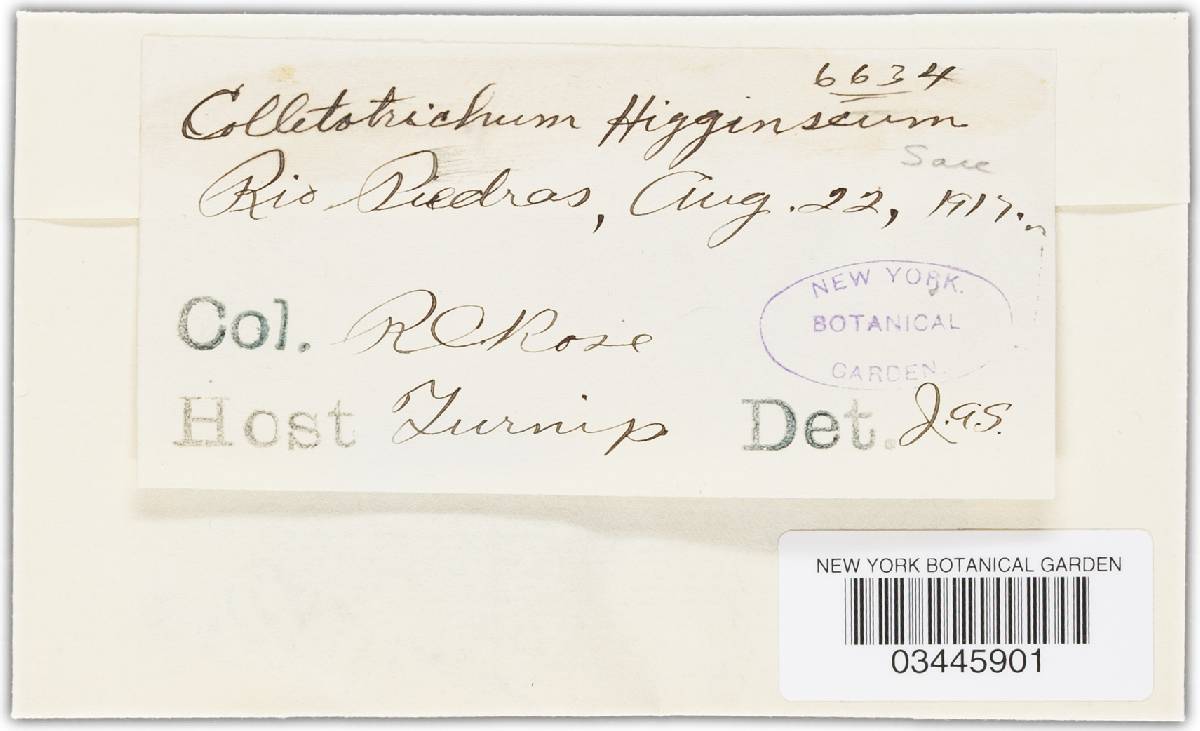 6634
Colletotrichum Higginseum
Sacc
Rio Piedras, Aug. 22, 1917.
Col. R C Rose
NEW YORK.
BOTANICAL
GARDEN
Host Turnip Det. J.A.S.
NEW YORK BOTANICAL GARDEN
03445901